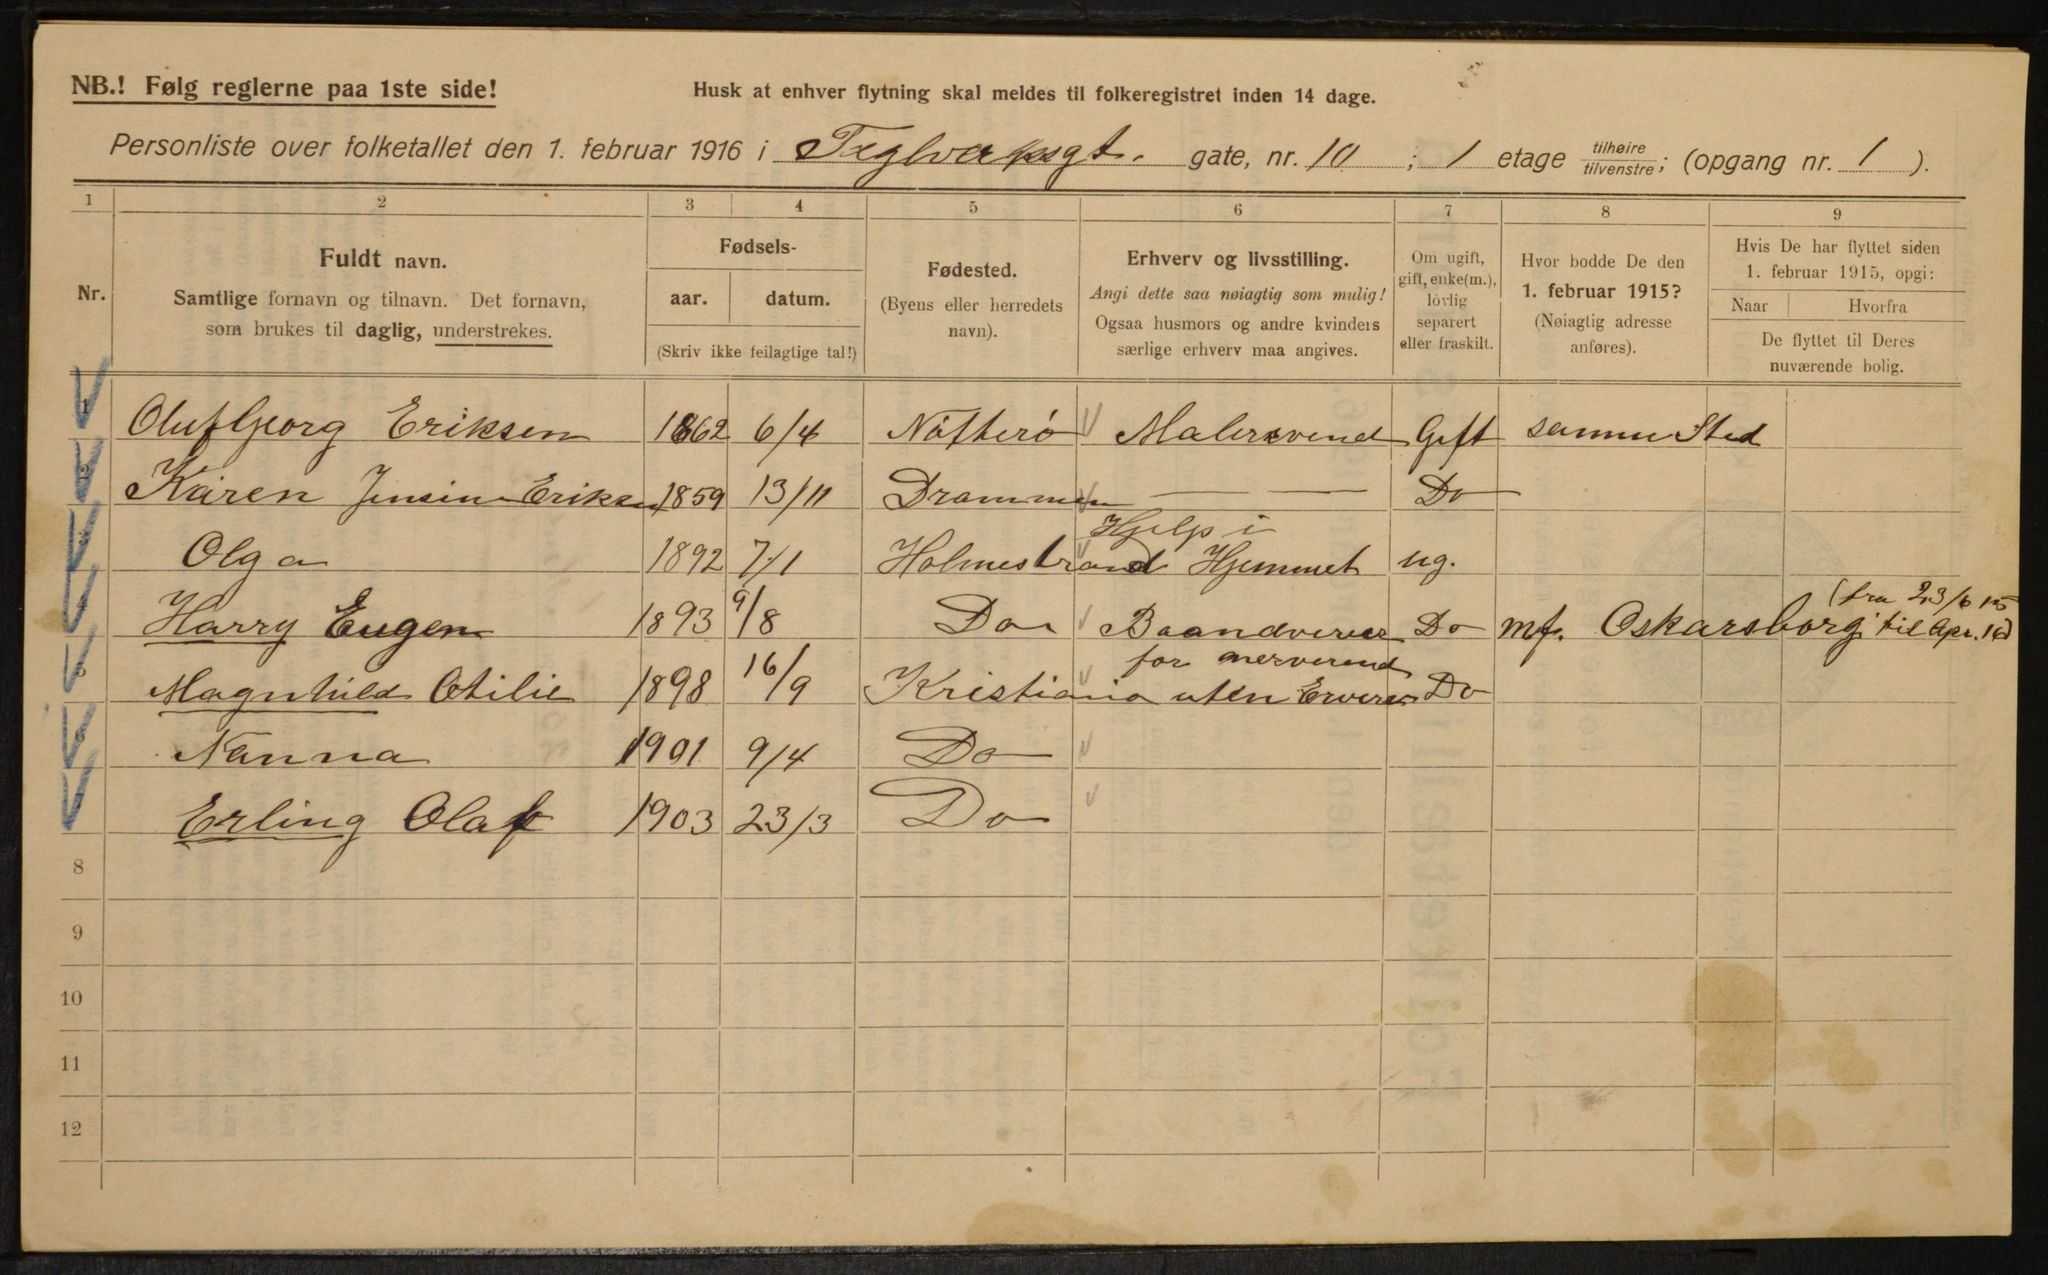 NB.! Følg reglerne paa 1ste side!
Husk at enhver flytning skal meldes til folkeregistret inden 14 dage.
Personliste over folketallet den 1. februar 1916 i Teglverksgt. gate, nr. 10 ; 1 etage tilhøire / tilvenstre; (opgang nr. 1 ).
1 2 3 4 5 6 7 8 9
Nr.
Fuldt navn.
Samtlige fornavn og tilnavn. Det fornavn,
som brukes til daglig, understrekes.
Fødsels-
aar. datum.
(Skriv ikke feilagtige tal!)
Fødested.
(Byens eller herredets
navn).
Erhverv og livsstilling.
Angi dette saa nøiagtig som mulig!
Ogsaa husmors og andre kvinders
særlige erhverv maa angives.
Om ugift,
gift, enke(m.),
lovlig
separert
eller fraskilt.
Hvor bodde De den
1. februar 1915?
(Nøiagtig adresse
anføres).
Hvis De har flyttet siden
1. februar 1915, opgi:
Naar Hvorfra
De flyttet til Deres
nuværende bolig.
1 Oluf Georg Eriksen 1862 6/4 Nøtterö Malersvend Gift samme Sted
2 Karen Jensine Eriksen 1859 13/11 Drammen — — Do
3 Olga 1892 7/1 Holmestrand Hjelp i Hjemmet ug.
4 Harry Eugen 1893 9/8 Do Do mf. Oskarsborg (fra 23/6 15 til Apr. 16)
5 Magnhild Otilie 1898 16/9 Kristiania for nerverend uten Erverv Do
6 Nanna 1901 9/4 Do
Erling Olaf 1903 23/3 Do
8
9
10
11
12